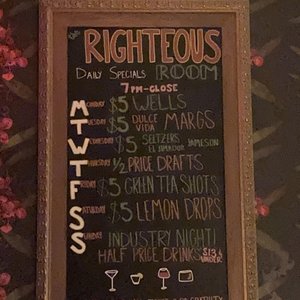 The
RIGHTEOUS
DAILY SPECIALS ROOM
7PM-CLOSE
MONDAY $5 WELLS
TUESDAY $5 DULCE VIDA MARGS
WEDNESDAY $5 SELTZERS EL JIMADOR JAMESON
THURSDAY 1/2 PRICE DRAFTS
FRIDAY $5 GREEN TEA SHOTS
SATURDAY $5 LEMON DROPS
SUNDAY INDUSTRY NIGHT!
HALF PRICE DRINKS $13 & UNDER